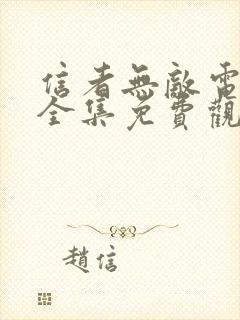 信者無敵電
全集免費觀
趙信